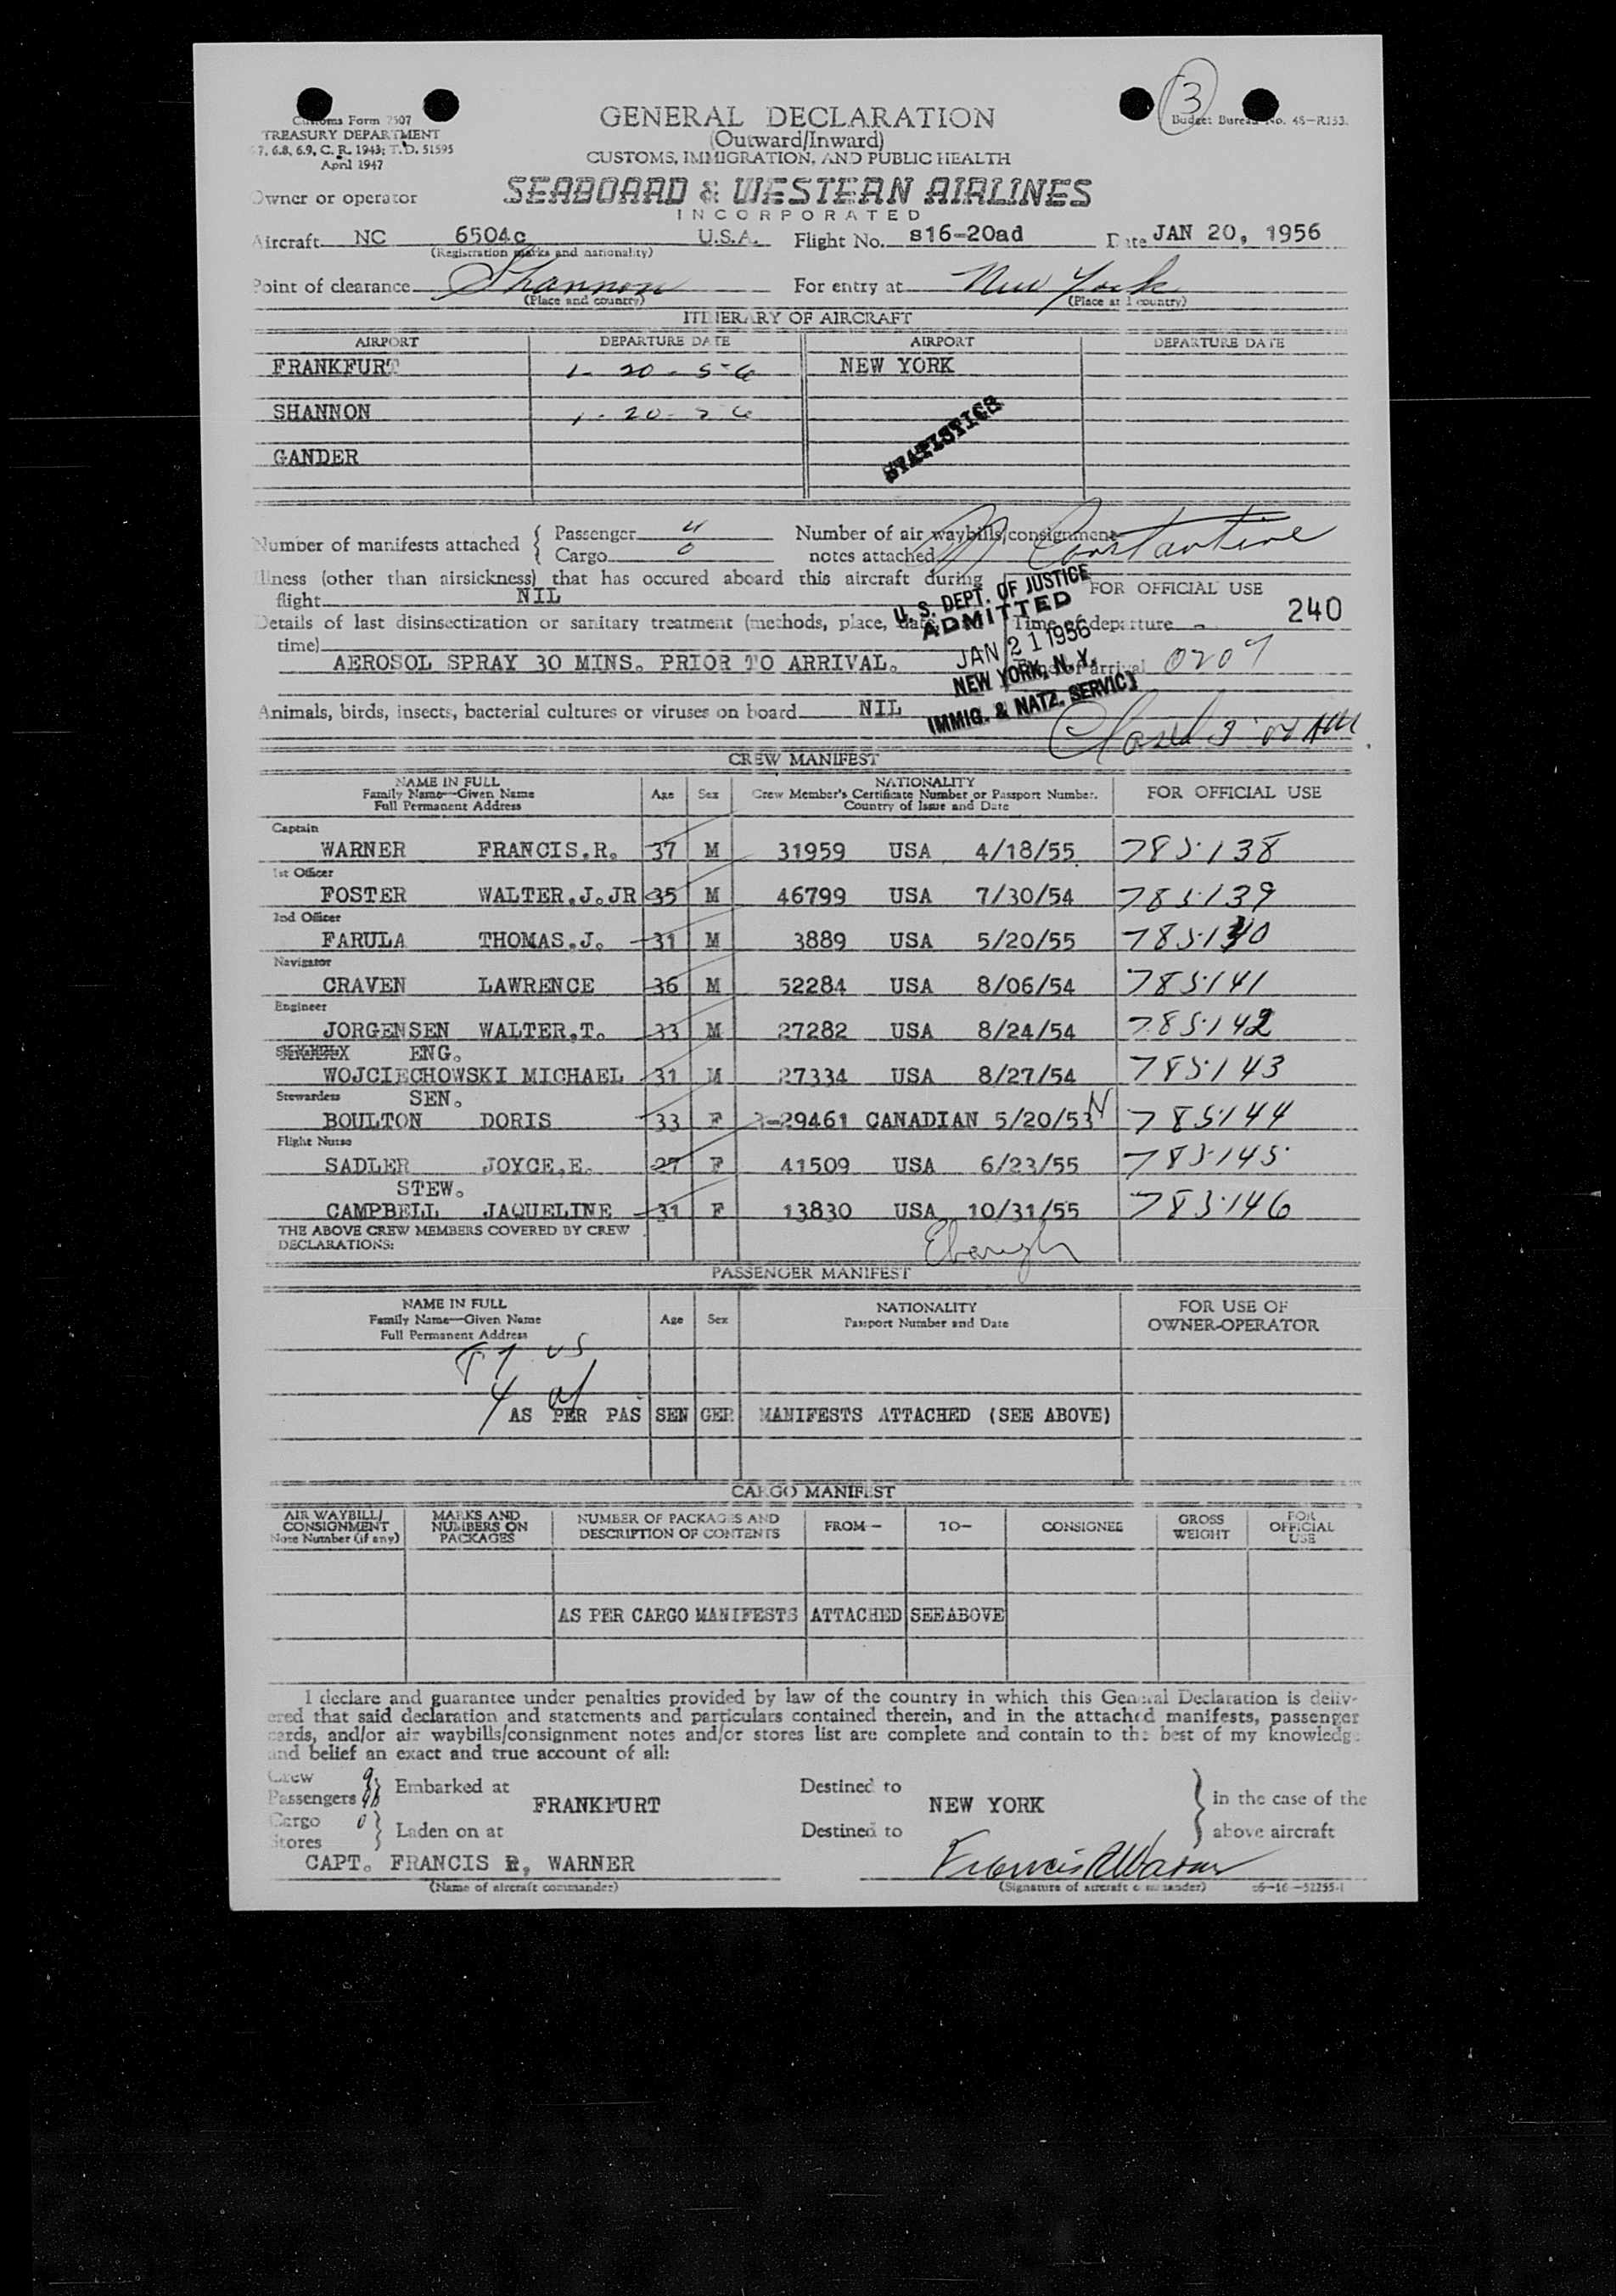 (3)
Customs Form 7507
TREASURY DEPARTMENT
7, 6.8, 6.9, C. R. 1943; T. D. 51595
April 1947
Budget Bureau No. 48-R153.
GENERAL DECLARATION
(Outward/Inward)
CUSTOMS, IMMIGRATION, AND PUBLIC HEALTH
Owner or operator SEABOARD & WESTERN AIRLINES
INCORPORATED
Aircraft NC 6504c U.S.A. Flight No. s16-20ad Date JAN 20, 1956
(Registration marks and nationality)
Point of clearance Shannon For entry at New York
(Place and country) (Place and country)
ITINERARY OF AIRCRAFT
AIRPORT DEPARTURE DATE AIRPORT DEPARTURE DATE
FRANKFURT 1-20-56 NEW YORK
SHANNON 1-20-56
STATISTICS
GANDER
Number of manifests attached { Passenger 4 Number of air waybills/consignment
Cargo 0 notes attached
Constantine
Illness (other than airsickness) that has occured aboard this aircraft during
flight NIL
FOR OFFICIAL USE
240
Details of last disinsectization or sanitary treatment (methods, place, date,
time)
Time of departure -
AEROSOL SPRAY 30 MINS. PRIOR TO ARRIVAL.
Time of arrival 0207
U. S. DEPT. OF JUSTICE
ADMITTED
JAN 21 1956
NEW YORK, N. Y.
IMMIG. & NATZ. SERVICE
Animals, birds, insects, bacterial cultures or viruses on board NIL
CREW MANIFEST
NAME IN FULL
Family Name—Given Name
Full Permanent Address
Age Sex
NATIONALITY
Crew Member's Certificate Number or Passport Number.
Country of Issue and Date
FOR OFFICIAL USE
Captain
WARNER FRANCIS.R. 37 M 31959 USA 4/18/55 785138
1st Officer
FOSTER WALTER.J.JR 35 M 46799 USA 7/30/54 785139
2nd Officer
FARULA THOMAS.J. 31 M 3889 USA 5/20/55 785140
Navigator
CRAVEN LAWRENCE 36 M 52284 USA 8/06/54 785141
Engineer
JORGENSEN WALTER.T. 33 M 27282 USA 8/24/54 785142
ENG.
WOJCIECHOWSKI MICHAEL 31 M 27334 USA 8/27/54 785143
Stewardess SEN.
BOULTON DORIS 33 F -29461 CANADIAN 5/20/53 N 785144
Flight Nurse
SADLER JOYCE.E. 27 F 41509 USA 6/23/55 785145
STEW.
CAMPBELL JAQUELINE 31 F 13830 USA 10/31/55 785146
THE ABOVE CREW MEMBERS COVERED BY CREW
DECLARATIONS:
PASSENGER MANIFEST
NAME IN FULL
Family Name—Given Name
Full Permanent Address
Age Sex
NATIONALITY
Passport Number and Date
FOR USE OF
OWNER-OPERATOR
US
4
AS PER PAS SEN GER MANIFESTS ATTACHED (SEE ABOVE)
CARGO MANIFEST
AIR WAYBILL/
CONSIGNMENT
Note Number (if any)
MARKS AND
NUMBERS ON
PACKAGES
NUMBER OF PACKAGES AND
DESCRIPTION OF CONTENTS
FROM— TO— CONSIGNEE
GROSS
WEIGHT
FOR
OFFICIAL
USE
AS PER CARGO MANIFESTS ATTACHED SEE ABOVE
I declare and guarantee under penalties provided by law of the country in which this General Declaration is deliv-
ered that said declaration and statements and particulars contained therein, and in the attached manifests, passenger
cards, and/or air waybills/consignment notes and/or stores list are complete and contain to the best of my knowledge
and belief an exact and true account of all:
Crew 9
Passengers } Embarked at FRANKFURT Destined to NEW YORK } in the case of the
Cargo 0
Stores } Laden on at Destined to above aircraft
CAPT. FRANCIS R, WARNER Francis R Warner
(Name of aircraft commander) (Signature of aircraft commander) 16-52255-1